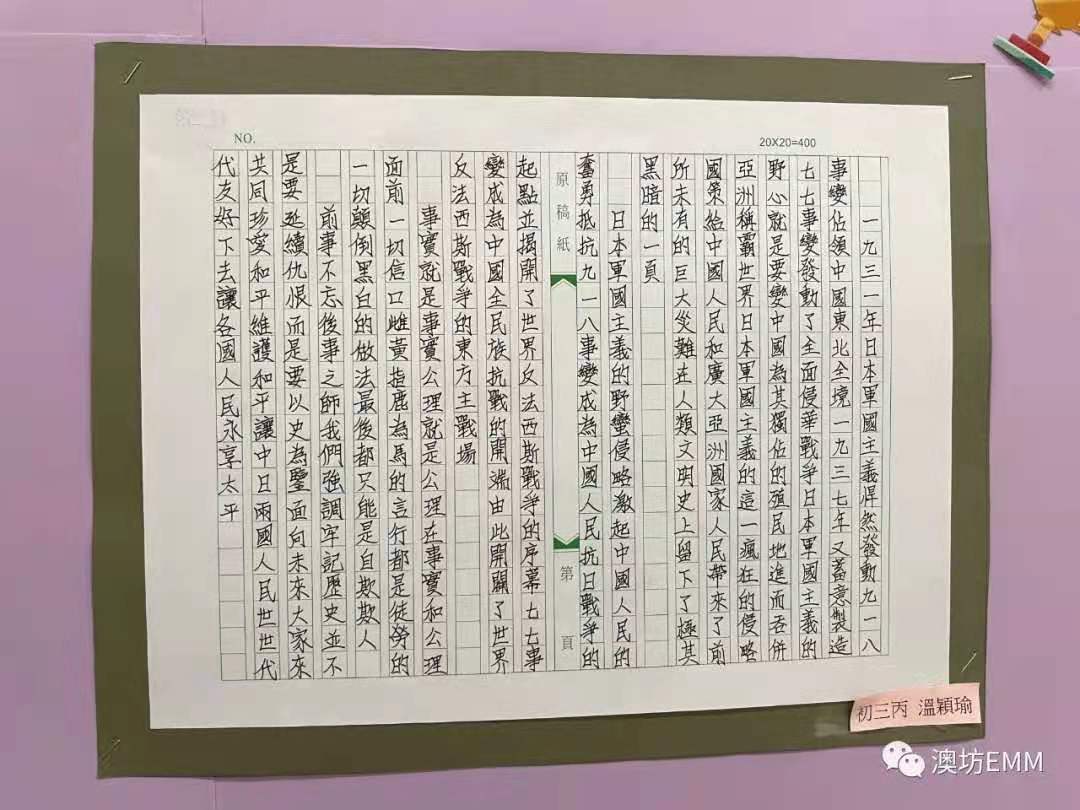 NO.
20X20=400
一九三一年日本軍國主義悍然發動九一八
事變佔領中國東北全境一九三七年又蓄意製造
七七事變發動了全面侵華戰爭日本軍國主義的
野心就是要變中國為其獨佔的殖民地進而吞併
亞洲稱霸世界日本軍國主義的這一瘋狂的侵略
國策給中國人民和廣大亞洲國家人民帶來了前
所未有的巨大災難在人類文明史上留下了極其
黑暗的一頁
日本軍國主義的野蠻侵略激起中國人民的
奮勇抵抗九一八事變成為中國人民抗日戰爭的
原稿紙 第 頁
起點並揭開了世界反法西斯戰爭的序幕七七事
變成為中國全民族抗戰的開端由此開闢了世界
反法西斯戰爭的東方主戰場
事實就是事實公理就是公理在事實和公理
面前一切信口雌黃指鹿為馬的言行都是徒勞的
一切顛倒黑白的做法最後都只能是自欺欺人
前事不忘後事之師我們強調牢記歷史並不
是要延續仇恨而是要以史為鑒面向未來大家來
共同珍愛和平維護和平讓中日兩國人民世世代
代友好下去讓各國人民永享太平
初三丙 溫穎瑜
澳坊EMM